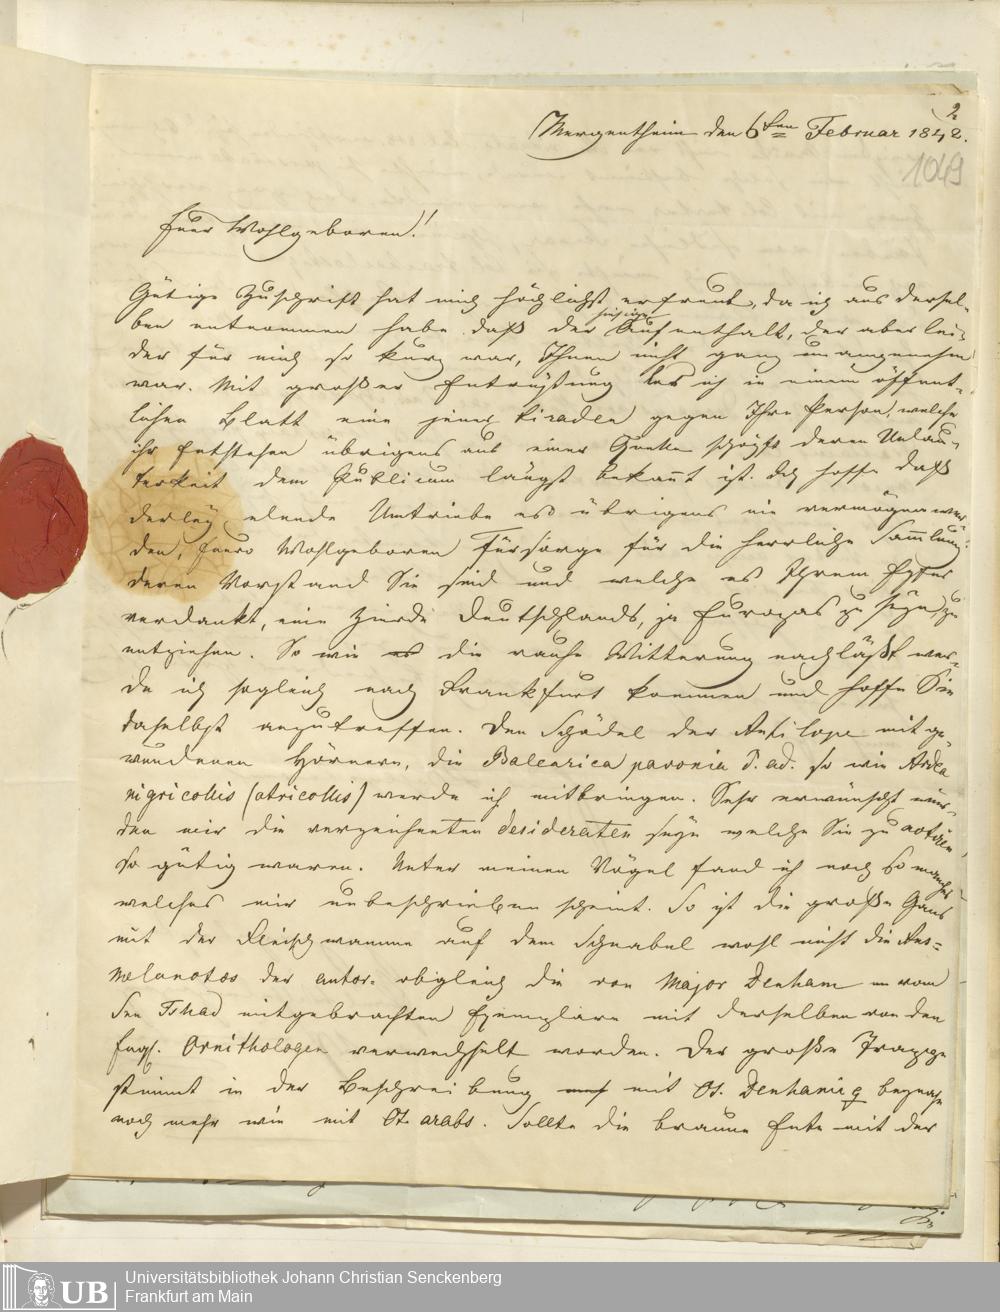 2
Mergentheim den 6ten Februar 1842.
1049
Euer Wohlgeboren!
Gütige Zuschrift hat mich höchlichst erfreut, da ich aus dersel-
ben entnommen habe daß der hiesige Aufenthalt, der aber lei-
der für mich so kurz war, Ihnen nicht ganz unangenehm
war. Mit großer Entrüstung las ich in einem öffent-
lichen Blatt eine jener Tiraden gegen Ihre Person, welche
ihr Entstehen übrigens aus einer Quelle schöpft deren Unlau-
terkeit dem Publicum längst bekannt ist. Ich hoffe daß
derley elende Umtriebe es übrigens nie vermögen wer-
den, Euer Wohlgeboren Fürsorge für die herrliche Sammlung
deren Vorstand Sie sind und welche es Ihrem Eyfer
verdankt, eine Zierde Deutschlands, ja Europas zu seyn, zu
entziehen. So wie es die rauhe Witterung nachläßt wer-
de ich sogleich nach Frankfurt kommen und hoffe Sie
daselbst anzutreffen. Den Schädel der Antilope mit ge-
wundenen Hörnern, die Balearica pavonia ad. so wie Ardea
nigricollis (atricollis) werde ich mitbringen. Sehr erwünscht wür-
den mir die verzeichneten Desideraten seyn welche Sie zu notiren
so gütig waren. Unter meinen Vögel fand ich noch so manches
welches mir unbeschrieben scheint. So ist die große Gans
mit der Fleischwamme auf dem Schnabel wohl nicht die Ans-
melanotos der autor. obgleich die von Major Denham vom
See Tshad mitgebrachten Exemplare mit derselben von den
Engl. Ornithologen verwechselt worden. Der große Trappe
stimmt in der Beschreibung mit Ot. Denhami ♀ beynahe
noch mehr wie mit Ot. arabs. Sollte die braune Ente mit der
Universitätsbibliothek Johann Christian Senckenberg
Frankfurt am Main
UB